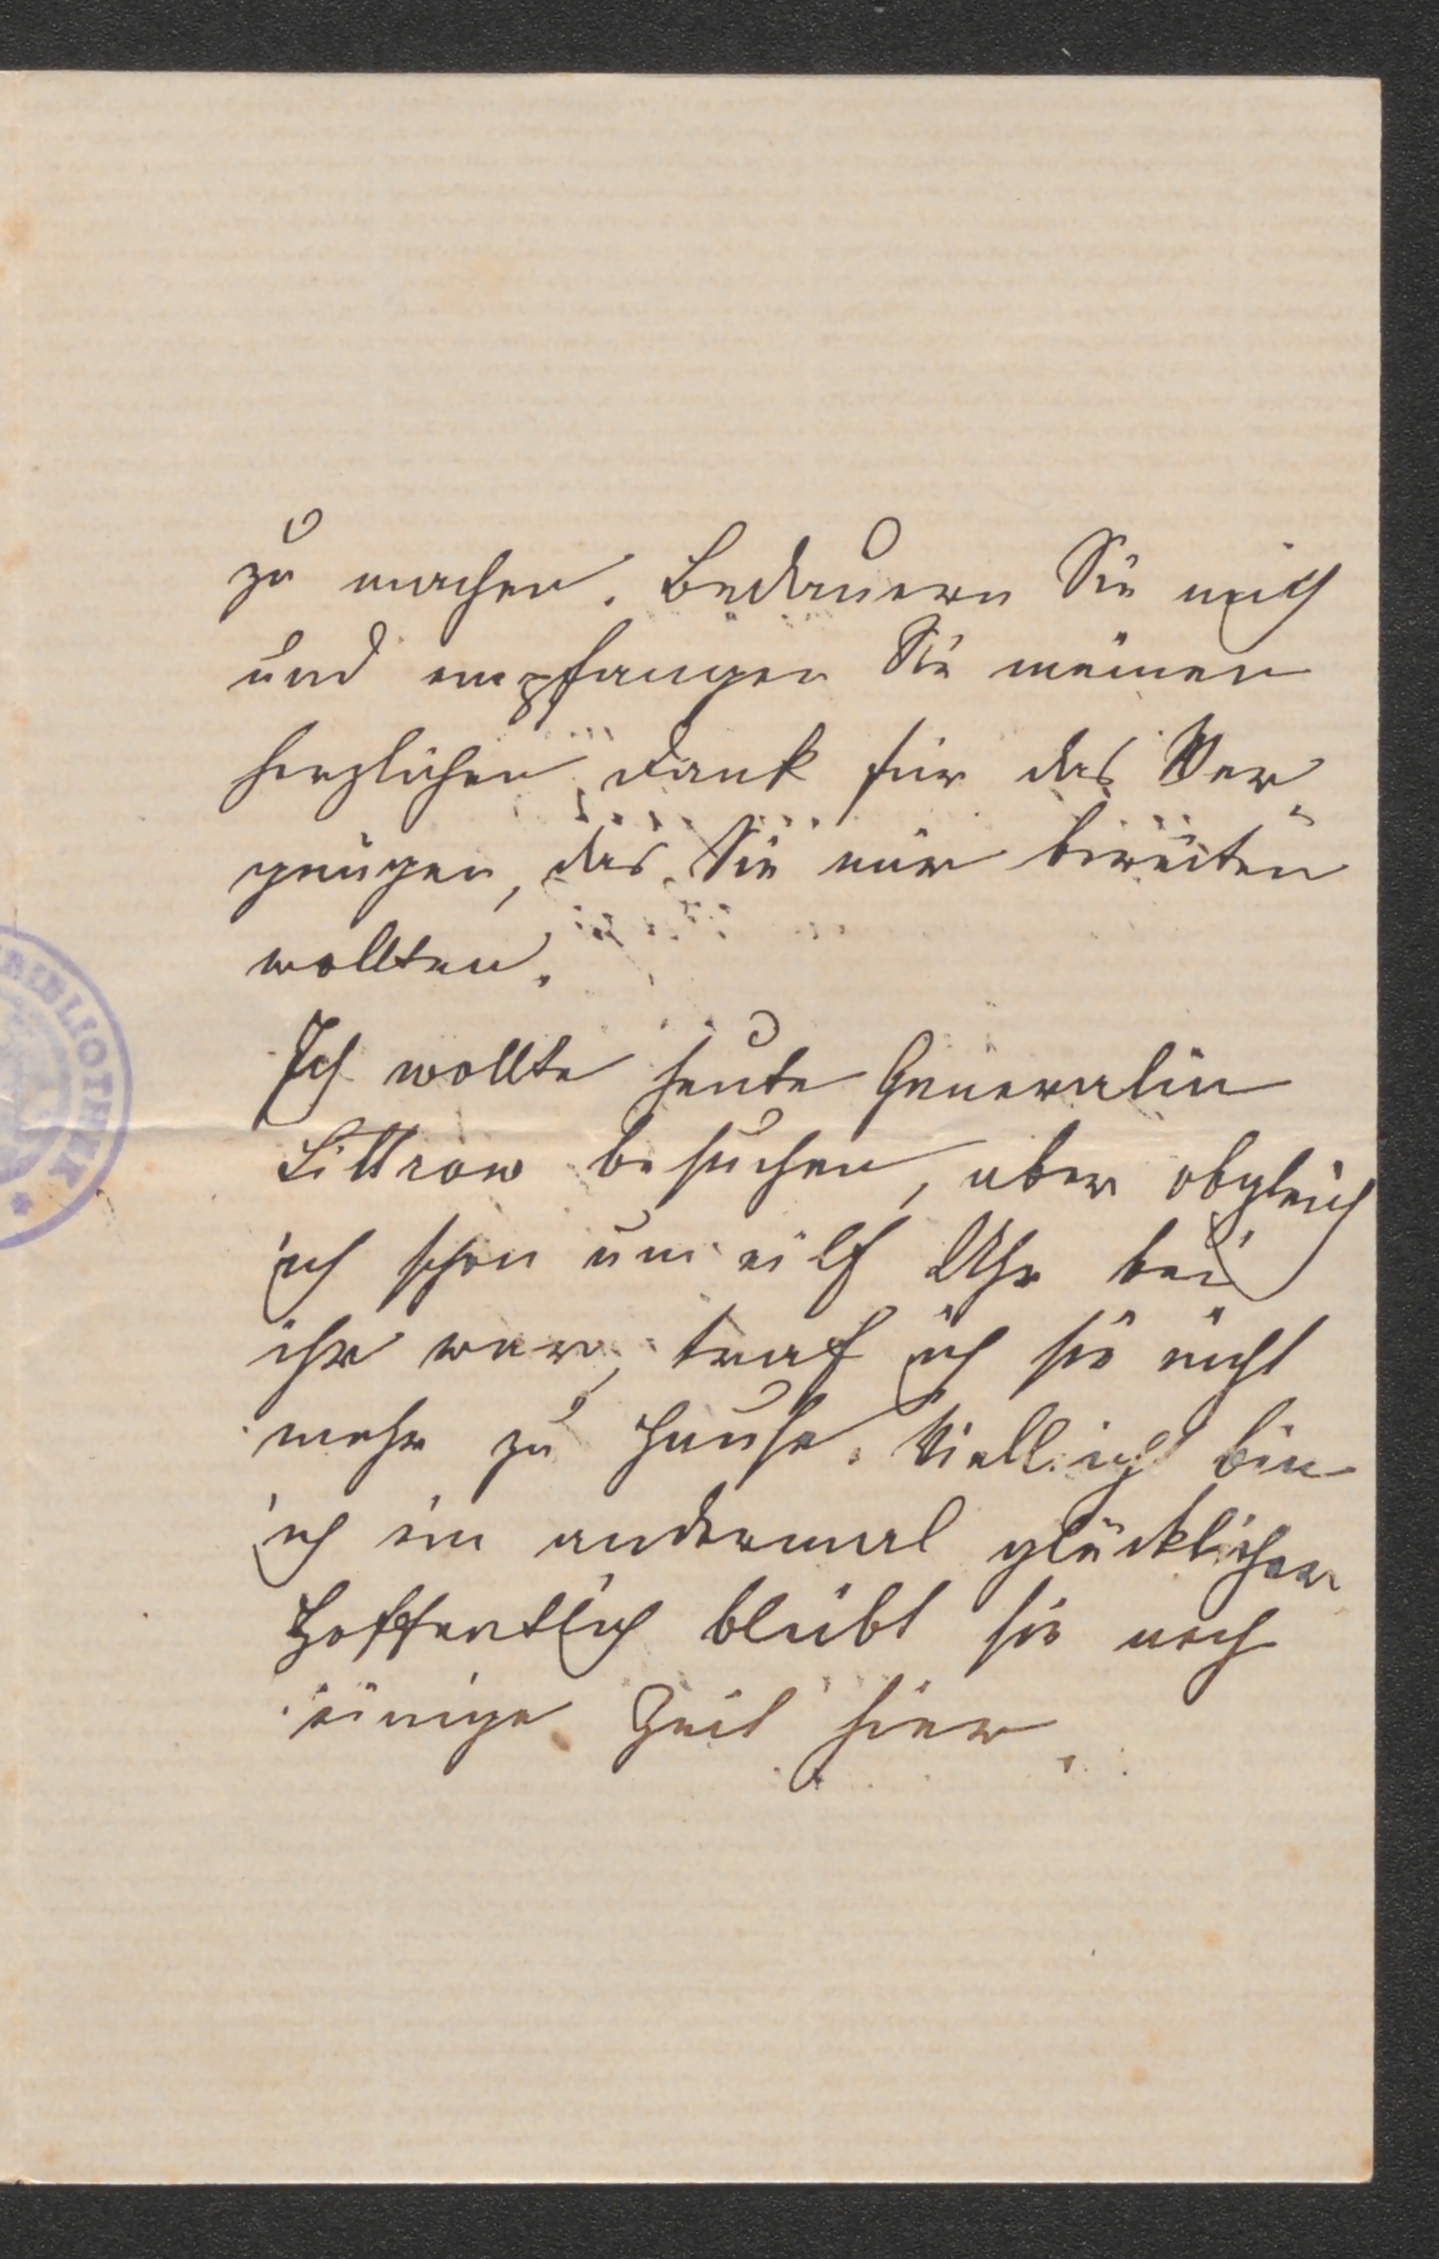 zu machen. Bedauern Sie mich
und empfangen Sie meinen
herzlichen Dank für das Ver-
gnügen, das Sie mir bereiten
wollten.
Ich wollte heute Generalin
Littrow besuchen, aber obgleich
ich schon um eilf Uhr bei
ihr war, traf ich sie nicht
mehr zu Hause. Vielleicht bin
ich ein andermal glücklicher
Hoffentlich bleibt sie noch
einige Zeit hier.
BIBLIOTHEK